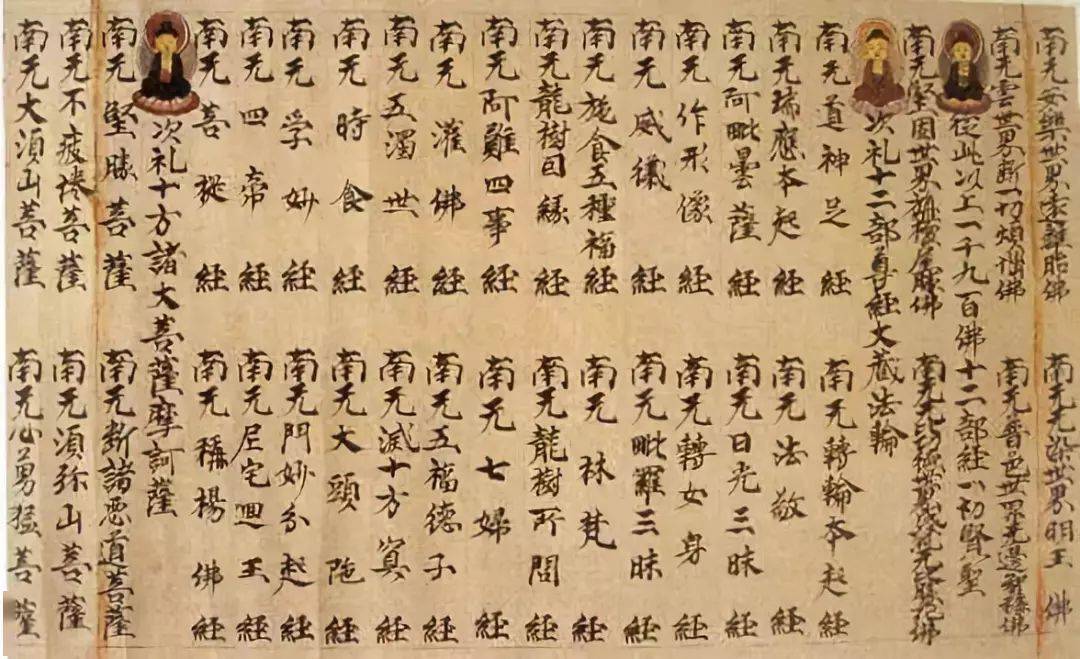 南无安樂世界遠離胎佛　南无无染世界明王佛
南无雲世界斷一切煩惱佛　南无普色世界无邊智稱佛
從此以上一千九百佛十二部経一切賢聖
南无堅固世界旃檀屋勝佛　南无无比功德世界成就无比勝花佛
次礼十二部尊経大藏法輪
南无道神足経　南无轉輪本起経
南无瑞應本起経　南无法敬経
南无阿毗曇薩経　南无日光三昧経
南无作形像経　南无轉女身経
南无威儀経　南无毗羅三昧経
南无施食五種福経　南无林梵経
南无龍樹因緣経　南无龍樹所問経
南无阿難四事経　南无七婦経
南无灌佛経　南无五福德子経
南无五濁世経　南无滅十方冥経
南无時食経　南无大頭陁経
南无孚妙経　南无門妙分起経
南无四帝経　南无尼宅迴王経
南无菩提経　南无稱楊佛経
次礼十方諸大菩薩摩訶薩
南无堅勝菩薩　南无斷諸惡道菩薩
南无不疲倦菩薩　南无須弥山菩薩
南无大須山菩薩　南无心勇猛菩薩